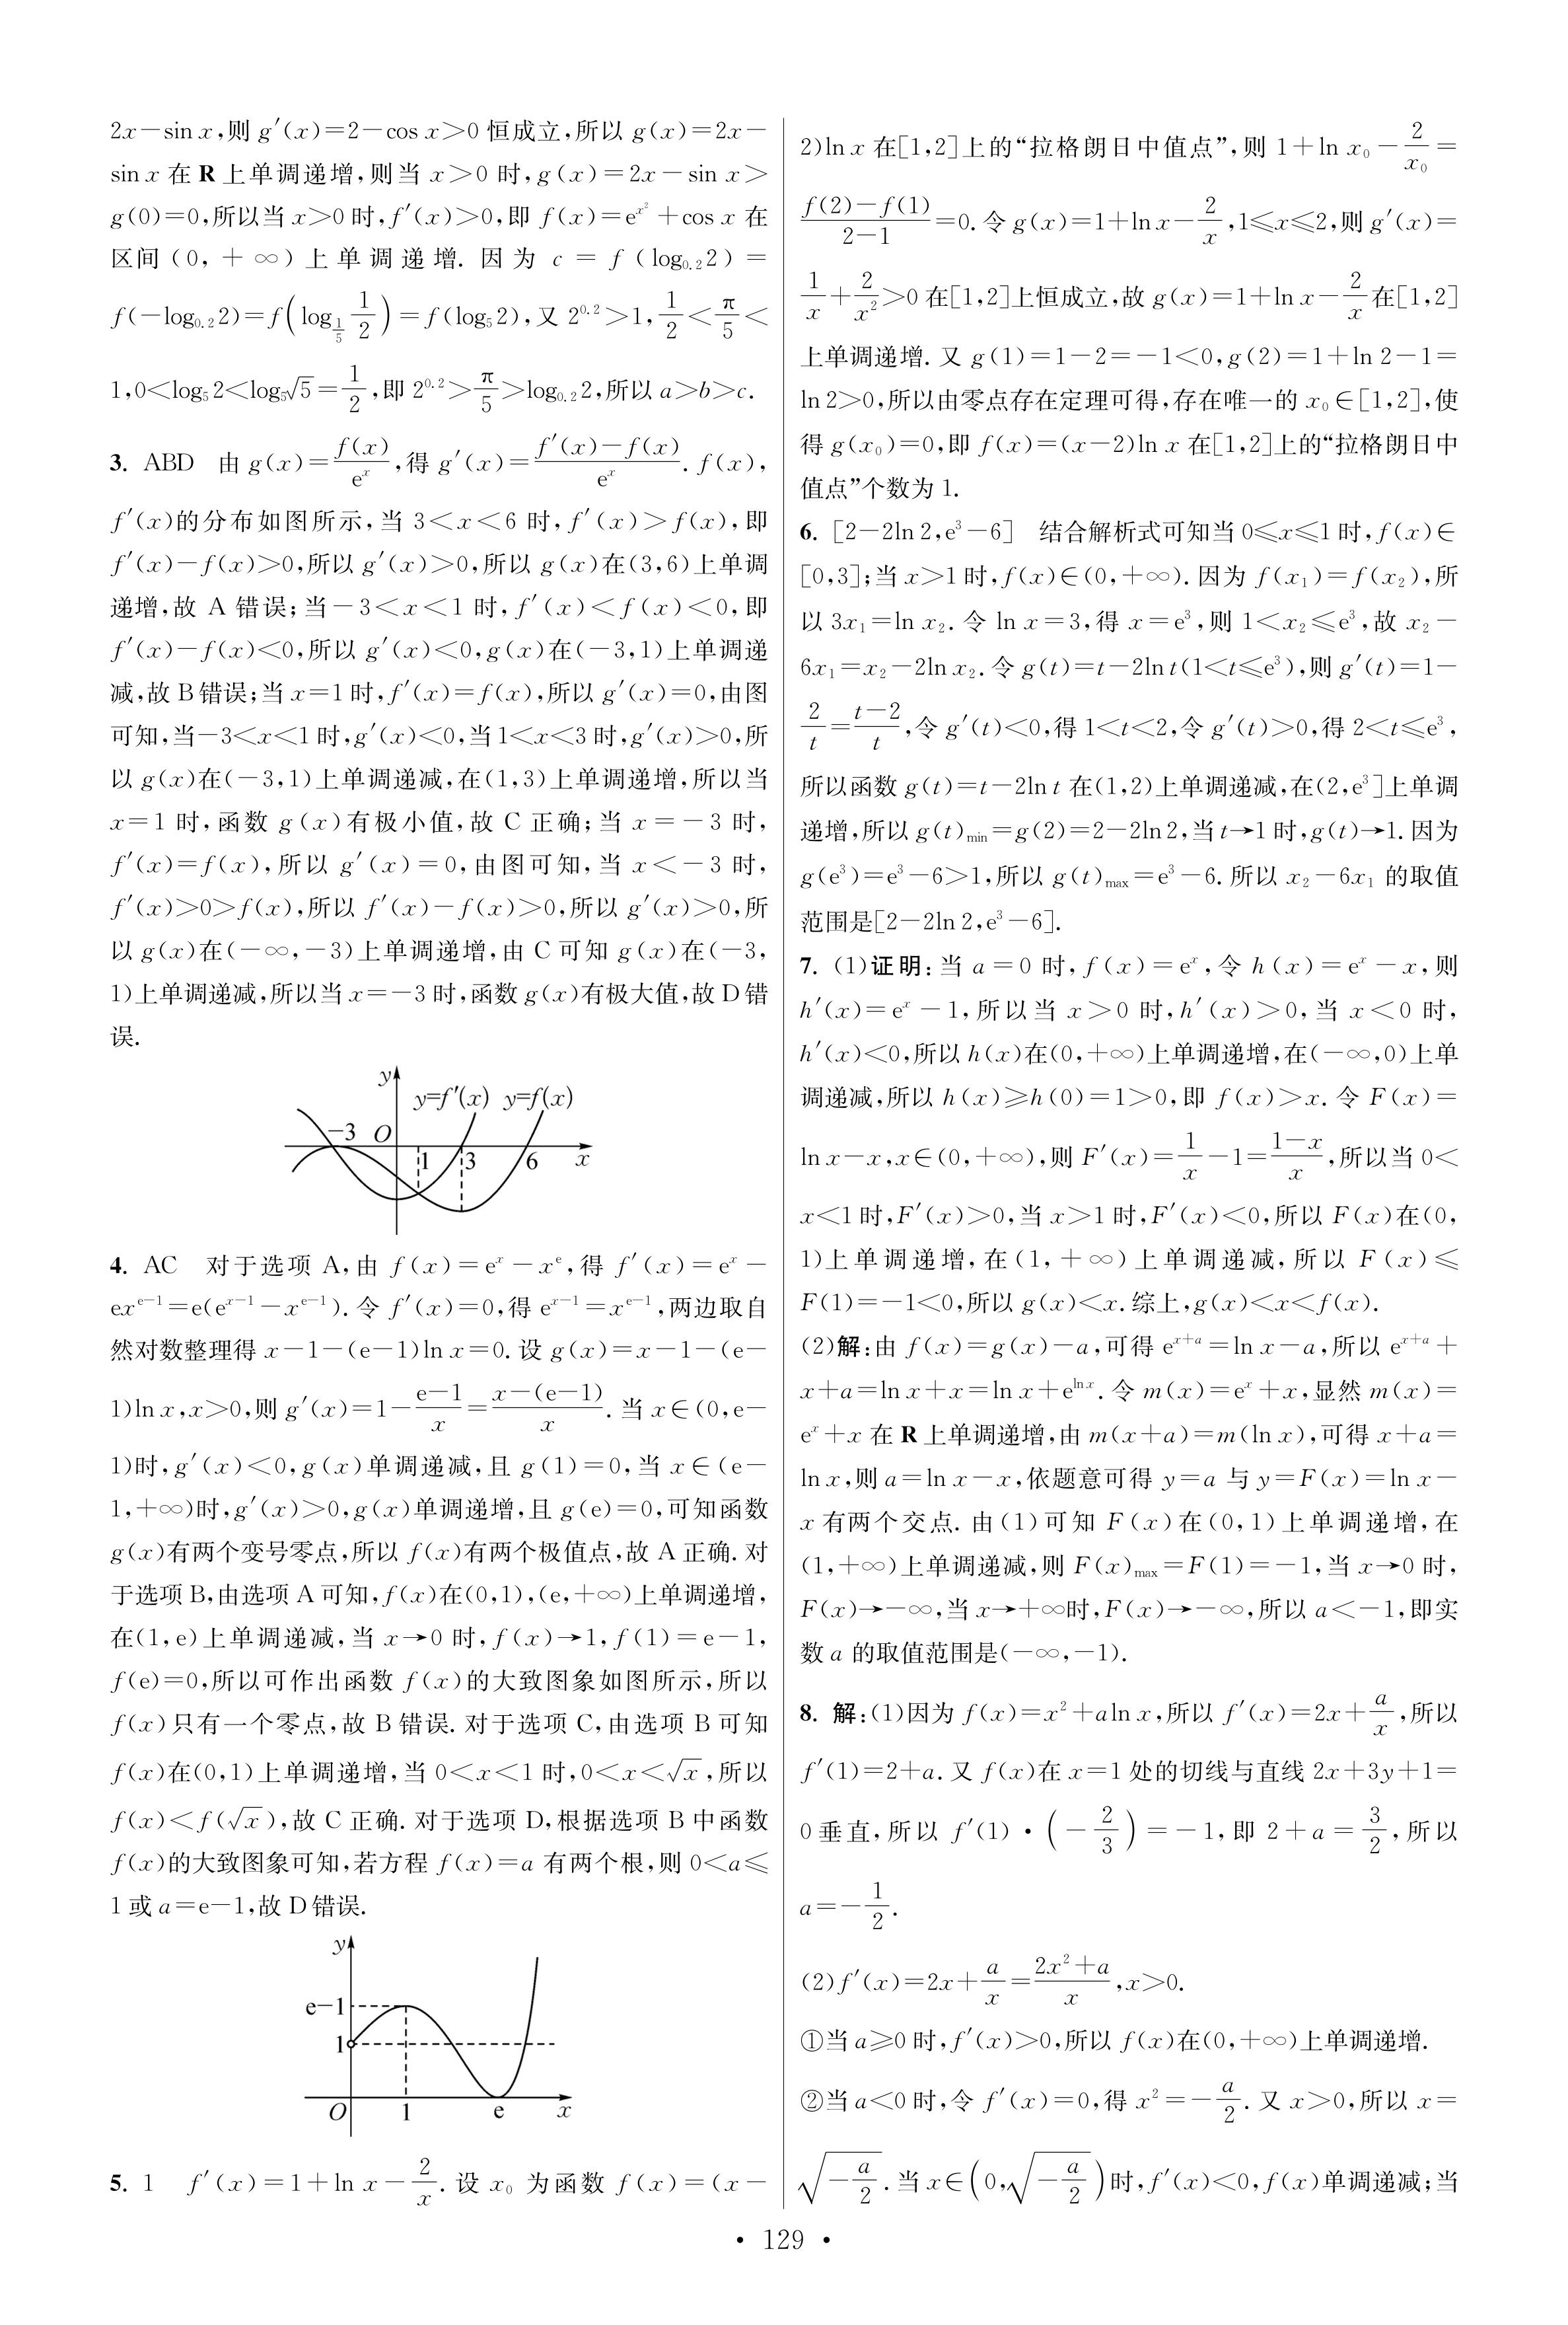 2x－sin x,则 g′(x)=2－cos x>0 恒成立,所以 g(x)=2x－
sin x 在 R 上单调递增,则当 x>0 时,g(x)=2x－sin x>
g(0)=0,所以当 x>0 时,f′(x)>0,即 f(x)=e^{x²}+cos x 在
区间(0,+∞)上单调递增. 因为 c=f(log_{0.2}2)=
f(－log_{0.2}2)=f(log_{1/5} 1/2)=f(log₅2),又 2^{0.2}>1,1/2<π/5<
1,0<log₅2<log₅√5=1/2,即 2^{0.2}>π/5>log_{0.2}2,所以 a>b>c.
3. ABD 由 g(x)=f(x)/e^x,得 g′(x)=(f′(x)－f(x))/e^x. f(x),
f′(x)的分布如图所示,当 3<x<6 时,f′(x)>f(x),即
f′(x)－f(x)>0,所以 g′(x)>0,所以 g(x)在(3,6)上单调
递增,故 A 错误;当－3<x<1 时,f′(x)<f(x)<0,即
f′(x)－f(x)<0,所以 g′(x)<0,g(x)在(－3,1)上单调递
减,故 B 错误;当 x=1 时,f′(x)=f(x),所以 g′(x)=0,由图
可知,当－3<x<1 时,g′(x)<0,当 1<x<3 时,g′(x)>0,所
以 g(x)在(－3,1)上单调递减,在(1,3)上单调递增,所以当
x=1 时,函数 g(x)有极小值,故 C 正确;当 x=－3 时,
f′(x)=f(x),所以 g′(x)=0,由图可知,当 x<－3 时,
f′(x)>0>f(x),所以 f′(x)－f(x)>0,所以 g′(x)>0,所
以 g(x)在(－∞,－3)上单调递增,由 C 可知 g(x)在(－3,
1)上单调递减,所以当 x=－3 时,函数 g(x)有极大值,故 D 错
误.
y
y=f′(x) y=f(x)
－3 O
1 3 6 x
4. AC 对于选项 A,由 f(x)=e^x－x^e,得 f′(x)=e^x－
ex^{e－1}=e(e^{x－1}－x^{e－1}). 令 f′(x)=0,得 e^{x－1}=x^{e－1},两边取自
然对数整理得 x－1－(e－1)ln x=0. 设 g(x)=x－1－(e－
1)ln x,x>0,则 g′(x)=1－(e－1)/x=(x－(e－1))/x. 当 x∈(0,e－
1)时,g′(x)<0,g(x)单调递减,且 g(1)=0,当 x∈(e－
1,+∞)时,g′(x)>0,g(x)单调递增,且 g(e)=0,可知函数
g(x)有两个变号零点,所以 f(x)有两个极值点,故 A 正确. 对
于选项 B,由选项 A 可知,f(x)在(0,1),(e,+∞)上单调递增,
在(1,e)上单调递减,当 x→0 时,f(x)→1,f(1)=e－1,
f(e)=0,所以可作出函数 f(x)的大致图象如图所示,所以
f(x)只有一个零点,故 B 错误. 对于选项 C,由选项 B 可知
f(x)在(0,1)上单调递增,当 0<x<1 时,0<x<√x,所以
f(x)<f(√x),故 C 正确. 对于选项 D,根据选项 B 中函数
f(x)的大致图象可知,若方程 f(x)=a 有两个根,则 0<a≤
1 或 a=e－1,故 D 错误.
y
e－1
1
O 1 e x
5. 1 f′(x)=1+ln x－2/x. 设 x₀ 为函数 f(x)=(x－
2)ln x 在[1,2]上的“拉格朗日中值点”,则 1+ln x₀－2/x₀=
(f(2)－f(1))/(2－1)=0. 令 g(x)=1+ln x－2/x,1≤x≤2,则 g′(x)=
1/x+2/x²>0 在[1,2]上恒成立,故 g(x)=1+ln x－2/x 在[1,2]
上单调递增. 又 g(1)=1－2=－1<0,g(2)=1+ln 2－1=
ln 2>0,所以由零点存在定理可得,存在唯一的 x₀∈[1,2],使
得 g(x₀)=0,即 f(x)=(x－2)ln x 在[1,2]上的“拉格朗日中
值点”个数为 1.
6. [2－2ln 2,e³－6] 结合解析式可知当 0≤x≤1 时,f(x)∈
[0,3];当 x>1 时,f(x)∈(0,+∞). 因为 f(x₁)=f(x₂),所
以 3x₁=ln x₂. 令 ln x=3,得 x=e³,则 1<x₂≤e³,故 x₂－
6x₁=x₂－2ln x₂. 令 g(t)=t－2ln t(1<t≤e³),则 g′(t)=1－
2/t=(t－2)/t,令 g′(t)<0,得 1<t<2,令 g′(t)>0,得 2<t≤e³,
所以函数 g(t)=t－2ln t 在(1,2)上单调递减,在(2,e³]上单调
递增,所以 g(t)_{min}=g(2)=2－2ln2,当 t→1 时,g(t)→1. 因为
g(e³)=e³－6>1,所以 g(t)_{max}=e³－6. 所以 x₂－6x₁ 的取值
范围是[2－2ln 2,e³－6].
7. (1)证明:当 a=0 时,f(x)=e^x,令 h(x)=e^x－x,则
h′(x)=e^x－1,所以当 x>0 时,h′(x)>0,当 x<0 时,
h′(x)<0,所以 h(x)在(0,+∞)上单调递增,在(－∞,0)上单
调递减,所以 h(x)≥h(0)=1>0,即 f(x)>x. 令 F(x)=
ln x－x,x∈(0,+∞),则 F′(x)=1/x－1=(1－x)/x,所以当 0<
x<1 时,F′(x)>0,当 x>1 时,F′(x)<0,所以 F(x)在(0,
1)上单调递增,在(1,+∞)上单调递减,所以 F(x)≤
F(1)=－1<0,所以 g(x)<x. 综上,g(x)<x<f(x).
(2)解:由 f(x)=g(x)－a,可得 e^{x+a}=ln x－a,所以 e^{x+a}+
x+a=ln x+x=ln x+e^{ln x}. 令 m(x)=e^x+x,显然 m(x)=
e^x+x 在 R 上单调递增,由 m(x+a)=m(ln x),可得 x+a=
ln x,则 a=ln x－x,依题意可得 y=a 与 y=F(x)=ln x－
x 有两个交点. 由(1)可知 F(x)在(0,1)上单调递增,在
(1,+∞)上单调递减,则 F(x)_{max}=F(1)=－1,当 x→0 时,
F(x)→－∞,当 x→+∞时,F(x)→－∞,所以 a<－1,即实
数 a 的取值范围是(－∞,－1).
8. 解:(1)因为 f(x)=x²+aln x,所以 f′(x)=2x+a/x,所以
f′(1)=2+a. 又 f(x)在 x=1 处的切线与直线 2x+3y+1=
0 垂直,所以 f′(1)·(－2/3)=－1,即 2+a=3/2,所以
a=－1/2.
(2)f′(x)=2x+a/x=(2x²+a)/x,x>0.
①当 a≥0 时,f′(x)>0,所以 f(x)在(0,+∞)上单调递增.
②当 a<0 时,令 f′(x)=0,得 x²=－a/2. 又 x>0,所以 x=
√(－a/2). 当 x∈(0,√(－a/2))时,f′(x)<0,f(x)单调递减;当
· 129 ·